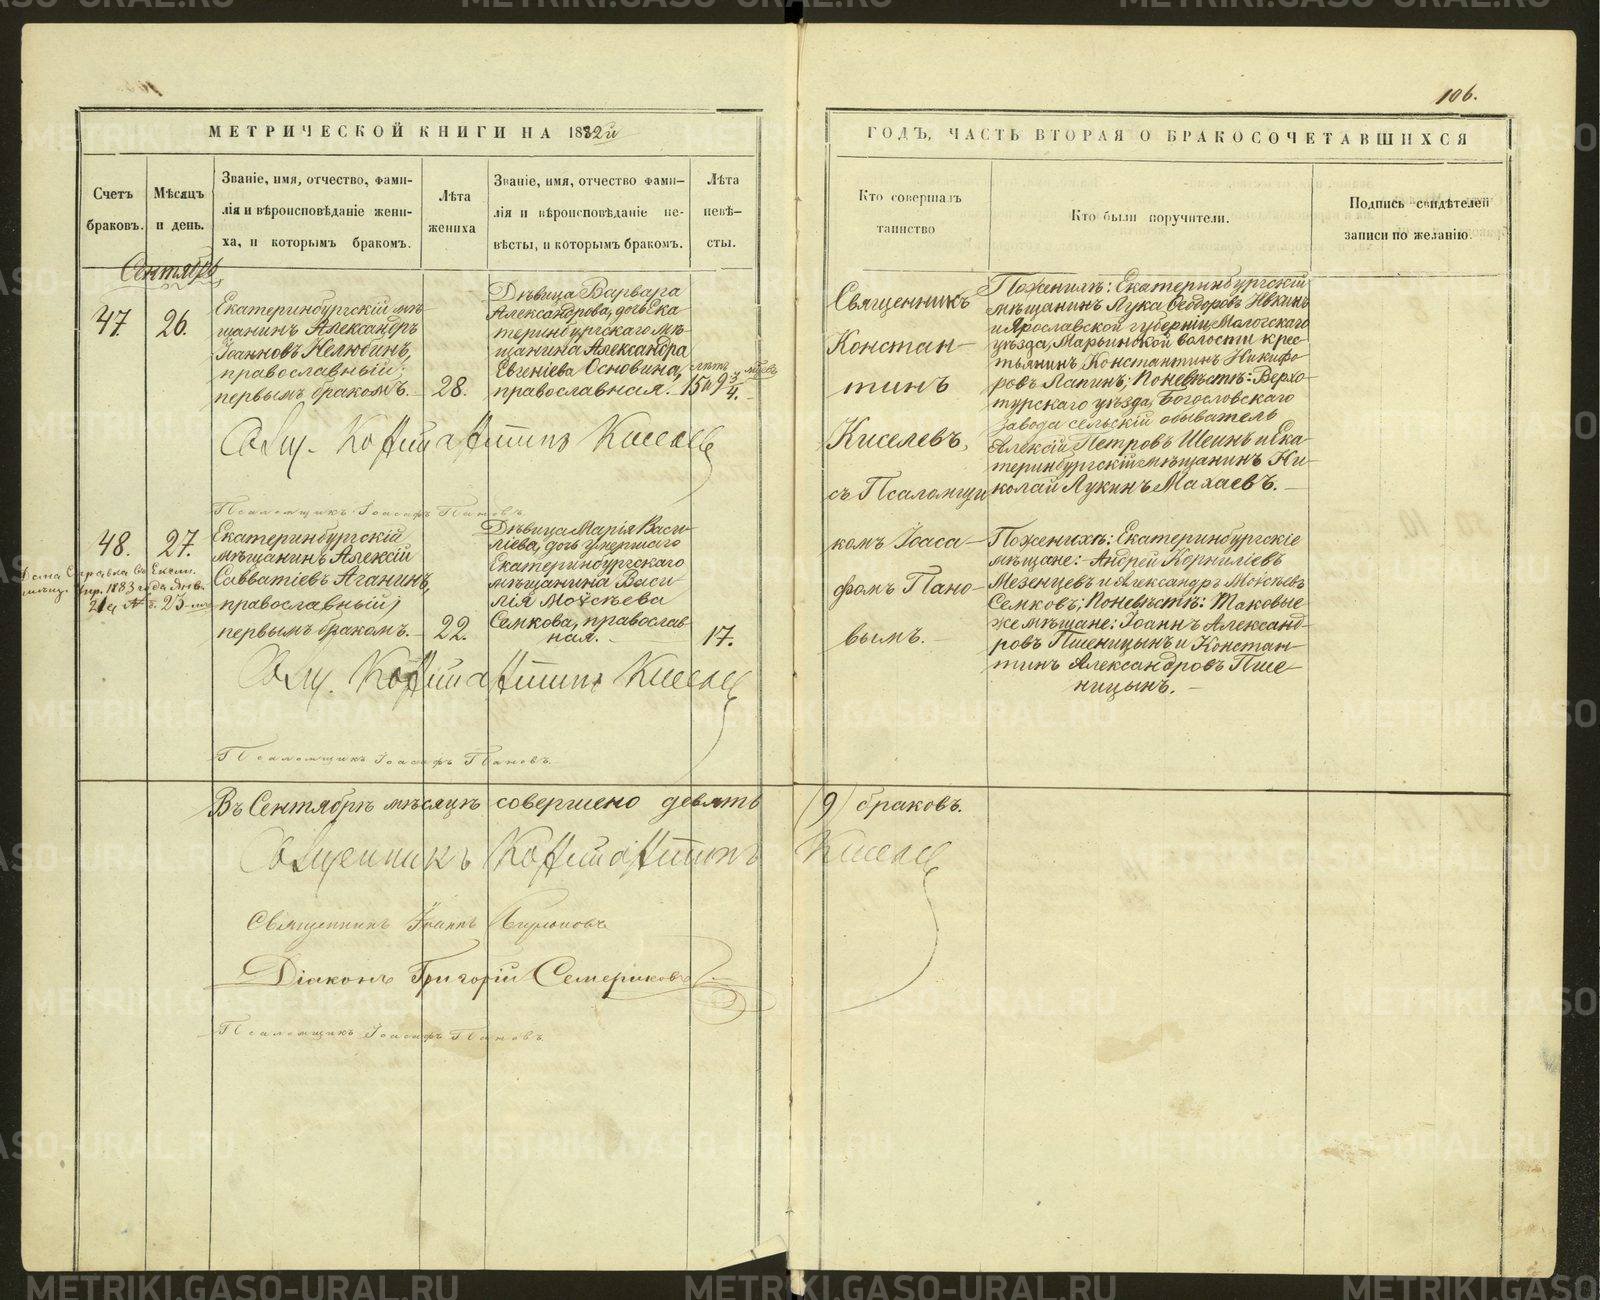 106.
МЕТРИЧЕСКОЙ КНИГИ НА 1882й
ГОДЪ, ЧАСТЬ ВТОРАЯ О БРАКОСОЧЕТАВШИХСЯ
Счетъ браковъ.
Мѣсяцъ и день.
Званіе, имя, отчество, фами-
лія и вѣроисповѣданіе жени-
ха, и которымъ бракомъ.
Лѣта
жениха
Званіе, имя, отчество фами-
лія и вѣроисповѣданіе не-
вѣсты, и которымъ бракомъ.
Лѣта
невѣ-
сты.
Кто совершалъ
таинство
Кто были поручители.
Подпись свидѣтелей
записи по желанію.
Сентябрь
47.
26.
Екатеринбургскій мѣ-
щанинъ Александръ
Іоанновъ Нелюбинъ,
православный;
первымъ бракомъ.
28.
Дѣвица Варвара
Александрова, дочь Ека
теринбургскаго мѣ-
щанина Александра
Евгеніева Основина,
православная.
лѣтъ
15 и 9 3/4.
Священникъ
Констан-
тинъ
Киселевъ,
съ Псаломщи
комъ Іоаса-
фомъ Пано-
вымъ.
По женихѣ: Екатеринбургскій
мѣщанинъ Лука Ѳедоровъ
и Ярославской губерніи, Мологскаго
уѣзда, Марьинской волости крес-
тьянинъ Константинъ Никифо
ровъ Лапинъ; По невѣстѣ: Верхо-
турскаго уѣзда, Богословскаго
завода сельскій обыватель
Алексій Петровъ Шеинъ и Ека-
теринбургскій мѣщанинъ Ни-
колай Лукинъ Махаевъ.
Свящ. Константинъ Киселев
Псаломщикъ Іоасафъ Пановъ
48.
27.
Дана справка въ
1883 года Янв.
21 ч. № 23
Екатеринбургскій
мѣщанинъ Алексій
Савватіевъ Аганинъ,
православный;
первымъ бракомъ.
22.
Дѣвица Марія Васи-
ліева, дочь умершаго
Екатеринбургскаго
мѣщанина Васи-
лія Моѵсѣева
Семкова, православ
ная.
17.
По женихѣ: Екатеринбургскіе
мѣщане: Андрей Корниліевъ
Мезенцевъ и Александръ Моѵсѣевъ
Семковъ; По невѣстѣ: Таковые
же мѣщане: Іоаннъ Александ-
ровъ Пшеницынъ и Констан-
тинъ Александровъ Пше-
ницынъ.
Свящ. Константинъ Киселев
Псаломщикъ Іоасафъ Пановъ.
Въ Сентябрѣ мѣсяцѣ совершено девять (9) браковъ.
Священникъ Константинъ Киселев
Священникъ Іоаннъ
Діаконъ Григорій Семериковъ
Псаломщикъ Іоасафъ Пановъ.
METRIKI.GASO-URAL.RU